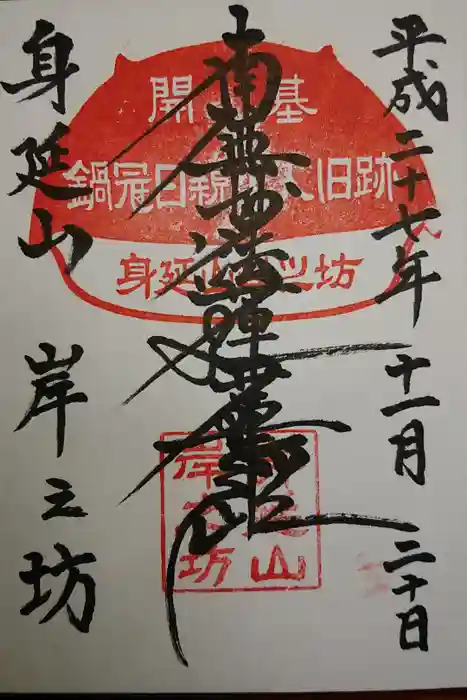 平成二十七年十一月二十日
南無妙法蓮華経
身延山 岸之坊
開基
鍋冠日親上人旧跡
身延山岸之坊
身延山
岸之坊